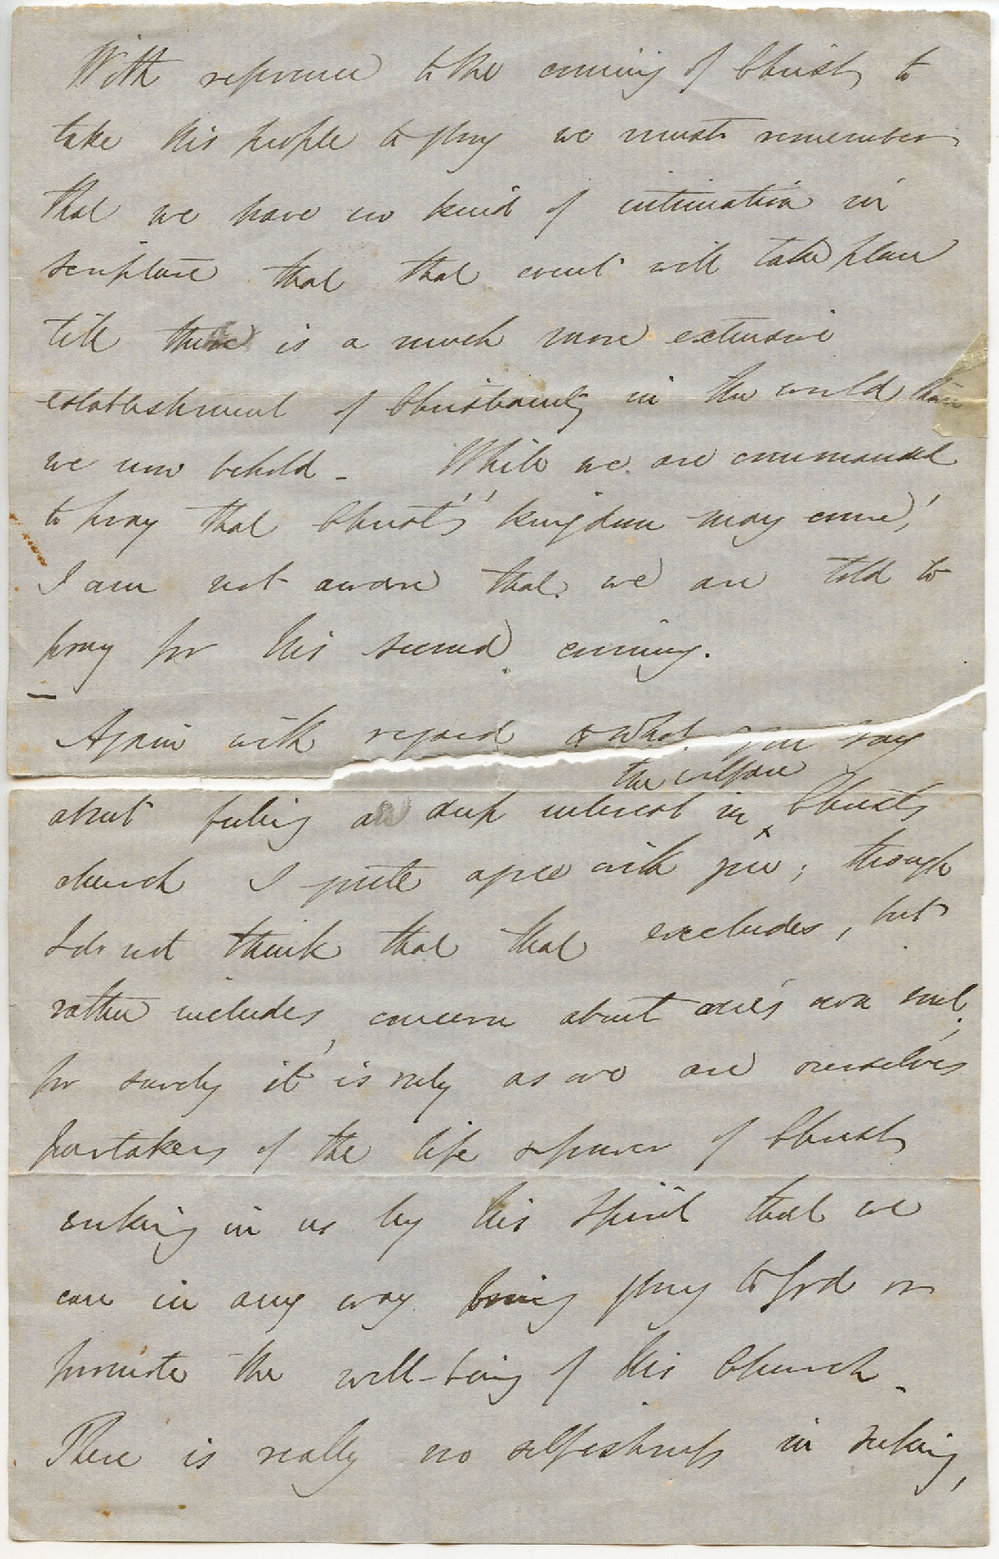 With reference to the coming of Christ, to
take his people to glory we must remember
that we have no kind of intimation in
scripture that that event will take place
till there is a much more extensive
establishment of Christianity in the world than
we now behold - While we are commanded
to pray that Christ's 'kingdom may come,'
I am not aware that we are told to
pray for his second coming.
Again with regard to what you say
the welfare
about feeling a deep interest in Christ's
church I quite agree with you; though
I do not think that that excludes, but
rather includes, concern about one's own soul;
for surely it is only as we are ourselves
partakers of the life & power of Christ,
working in us by his Spirit that we
can in any way bring glory to God or
promote the well-being of his Church.
There is really no selfishness in seeking,